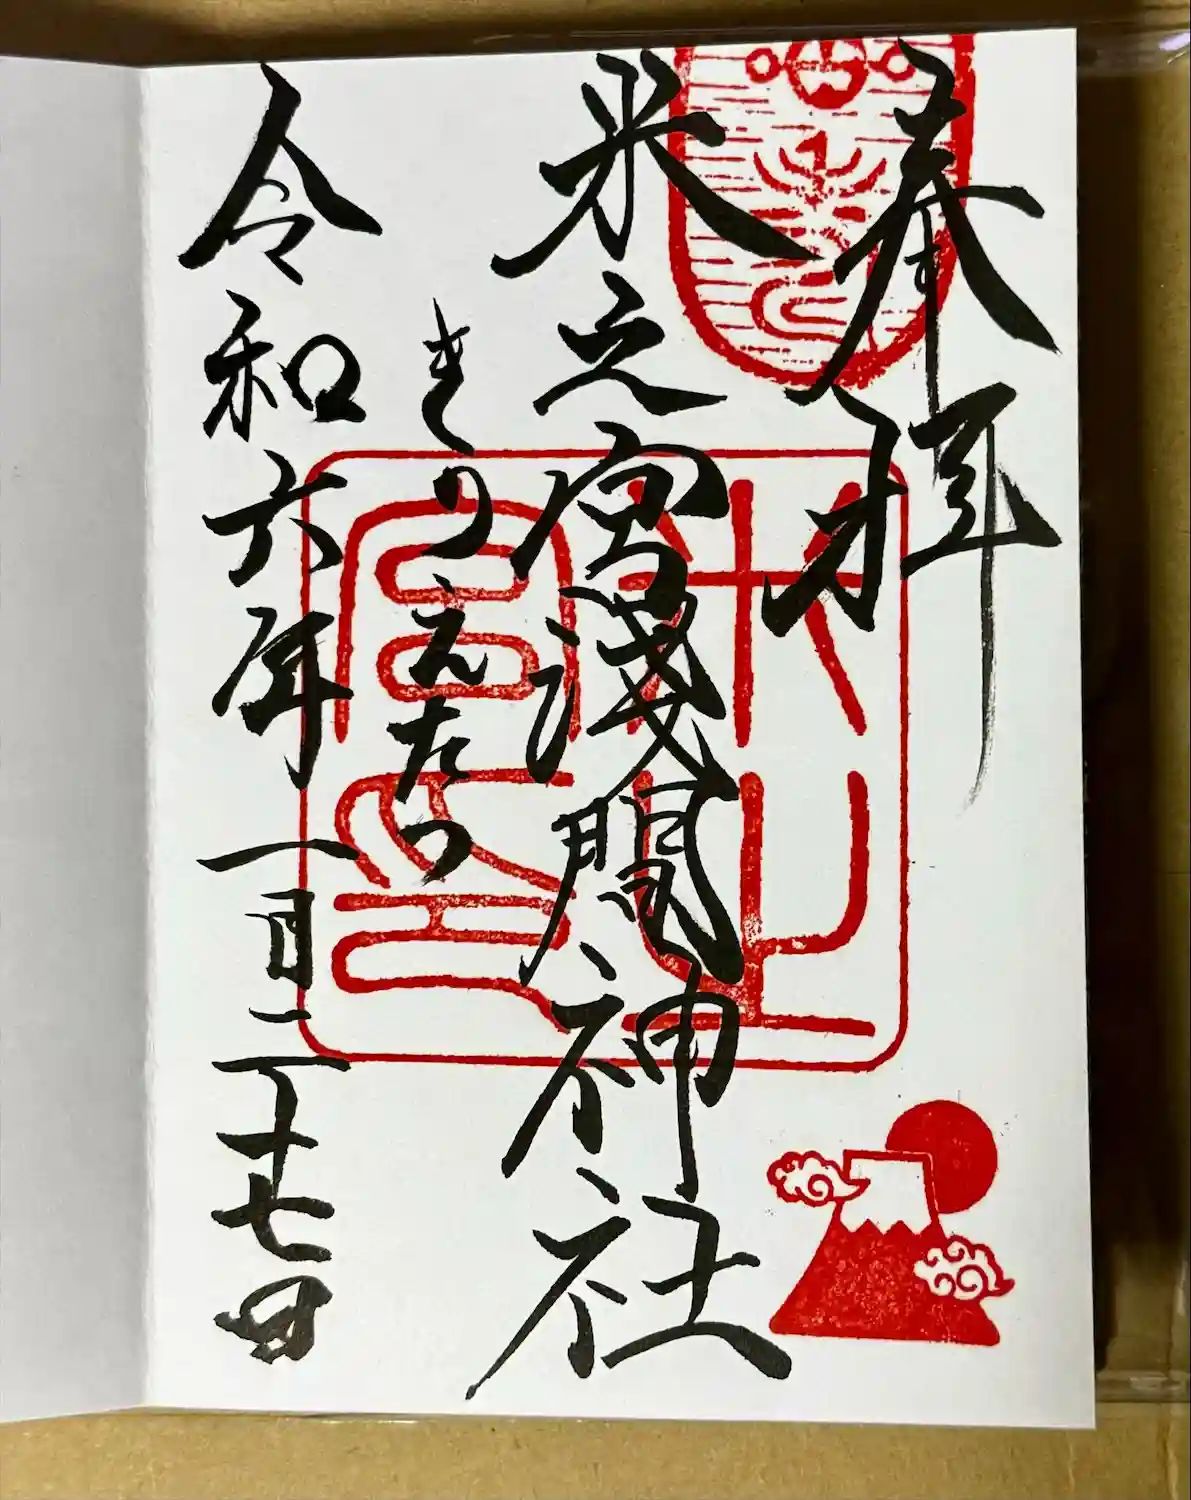 奉拝
米之宮浅間神社
きのえたつ
令和六年一月二十七日
米之
宮印